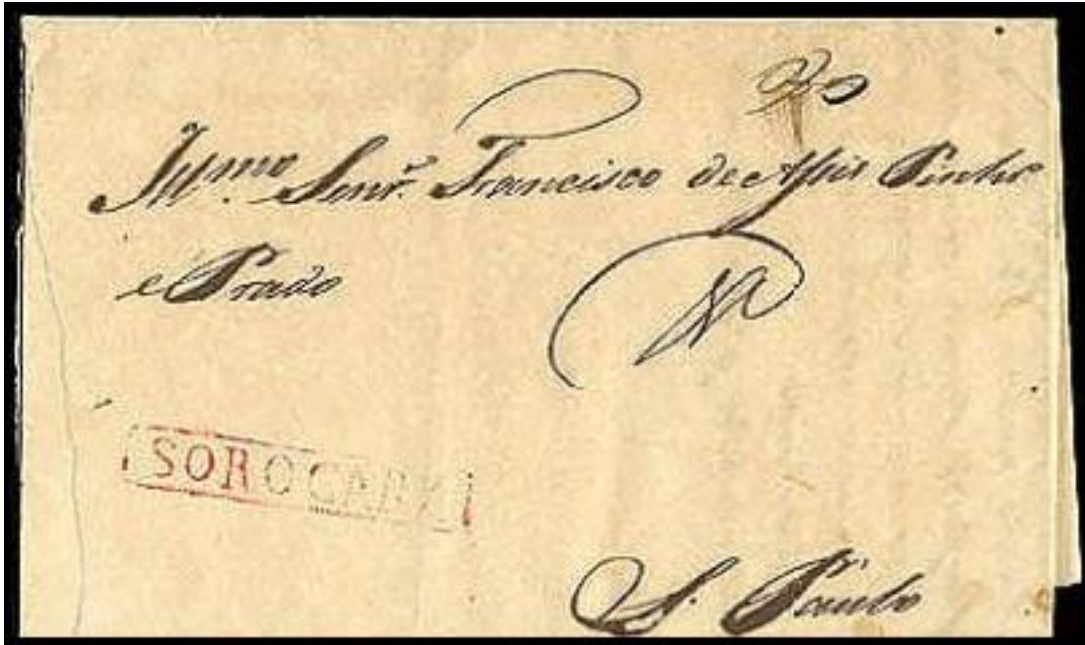 Ill.mo Senr. Francisco de Assis Pinto
e Prado
SOROCABA
S. Paulo